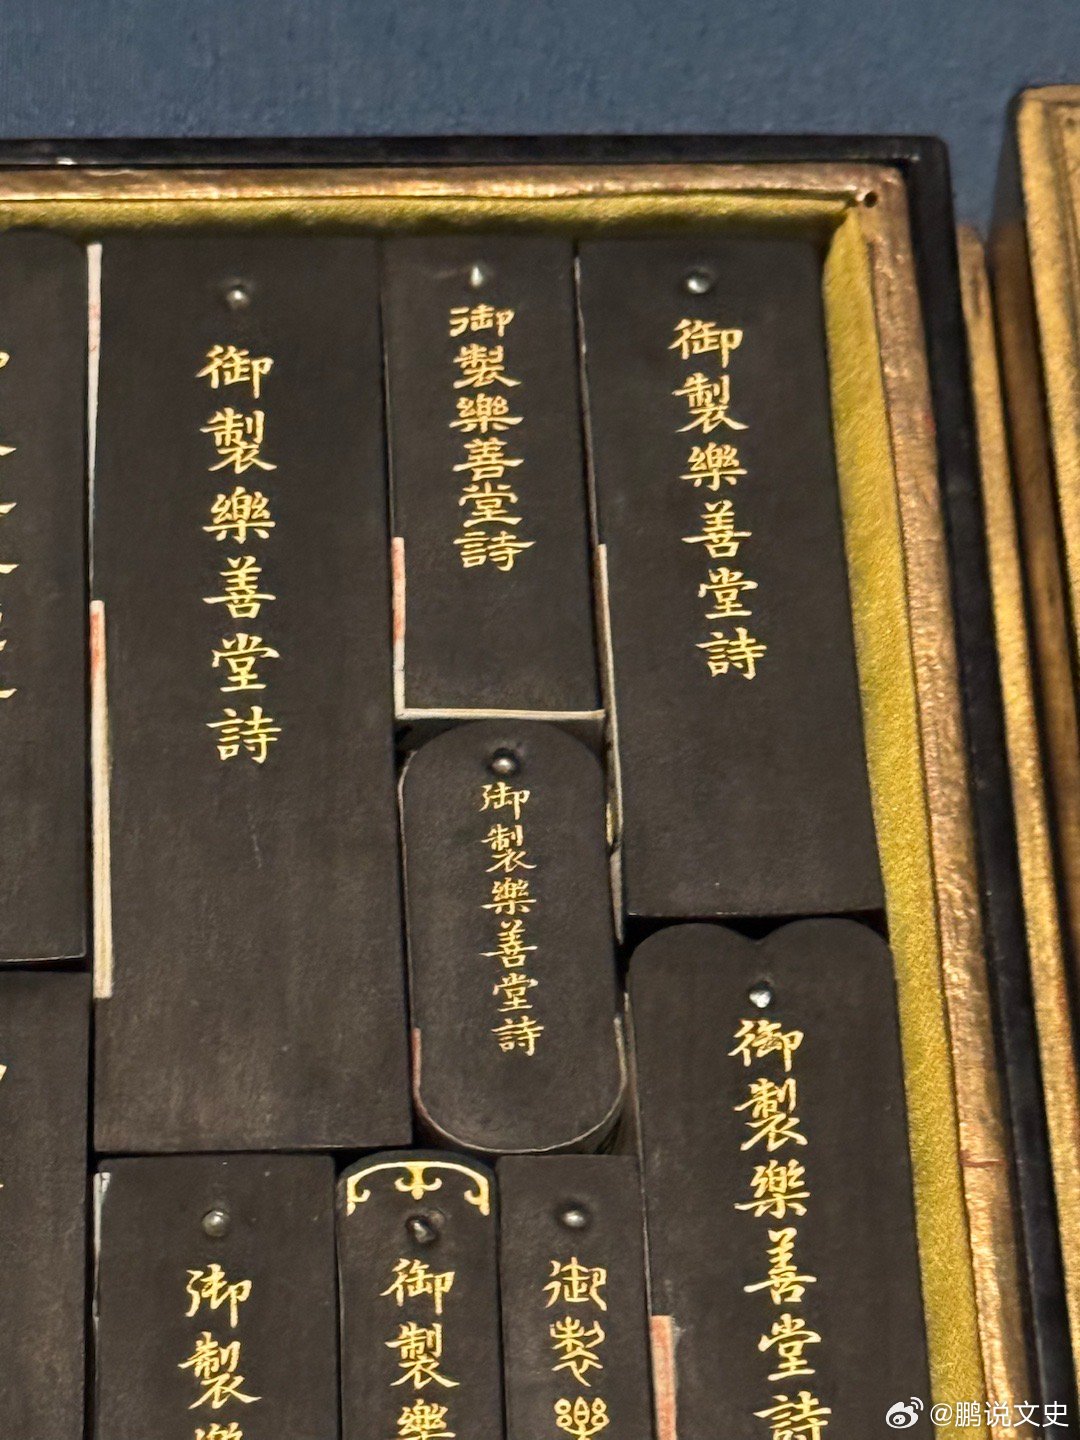 御製樂善堂詩
御製樂善堂詩
御製樂善堂詩
御製樂善堂詩
御製樂善堂詩
御製樂
御製樂
御製樂
@鹏说文史